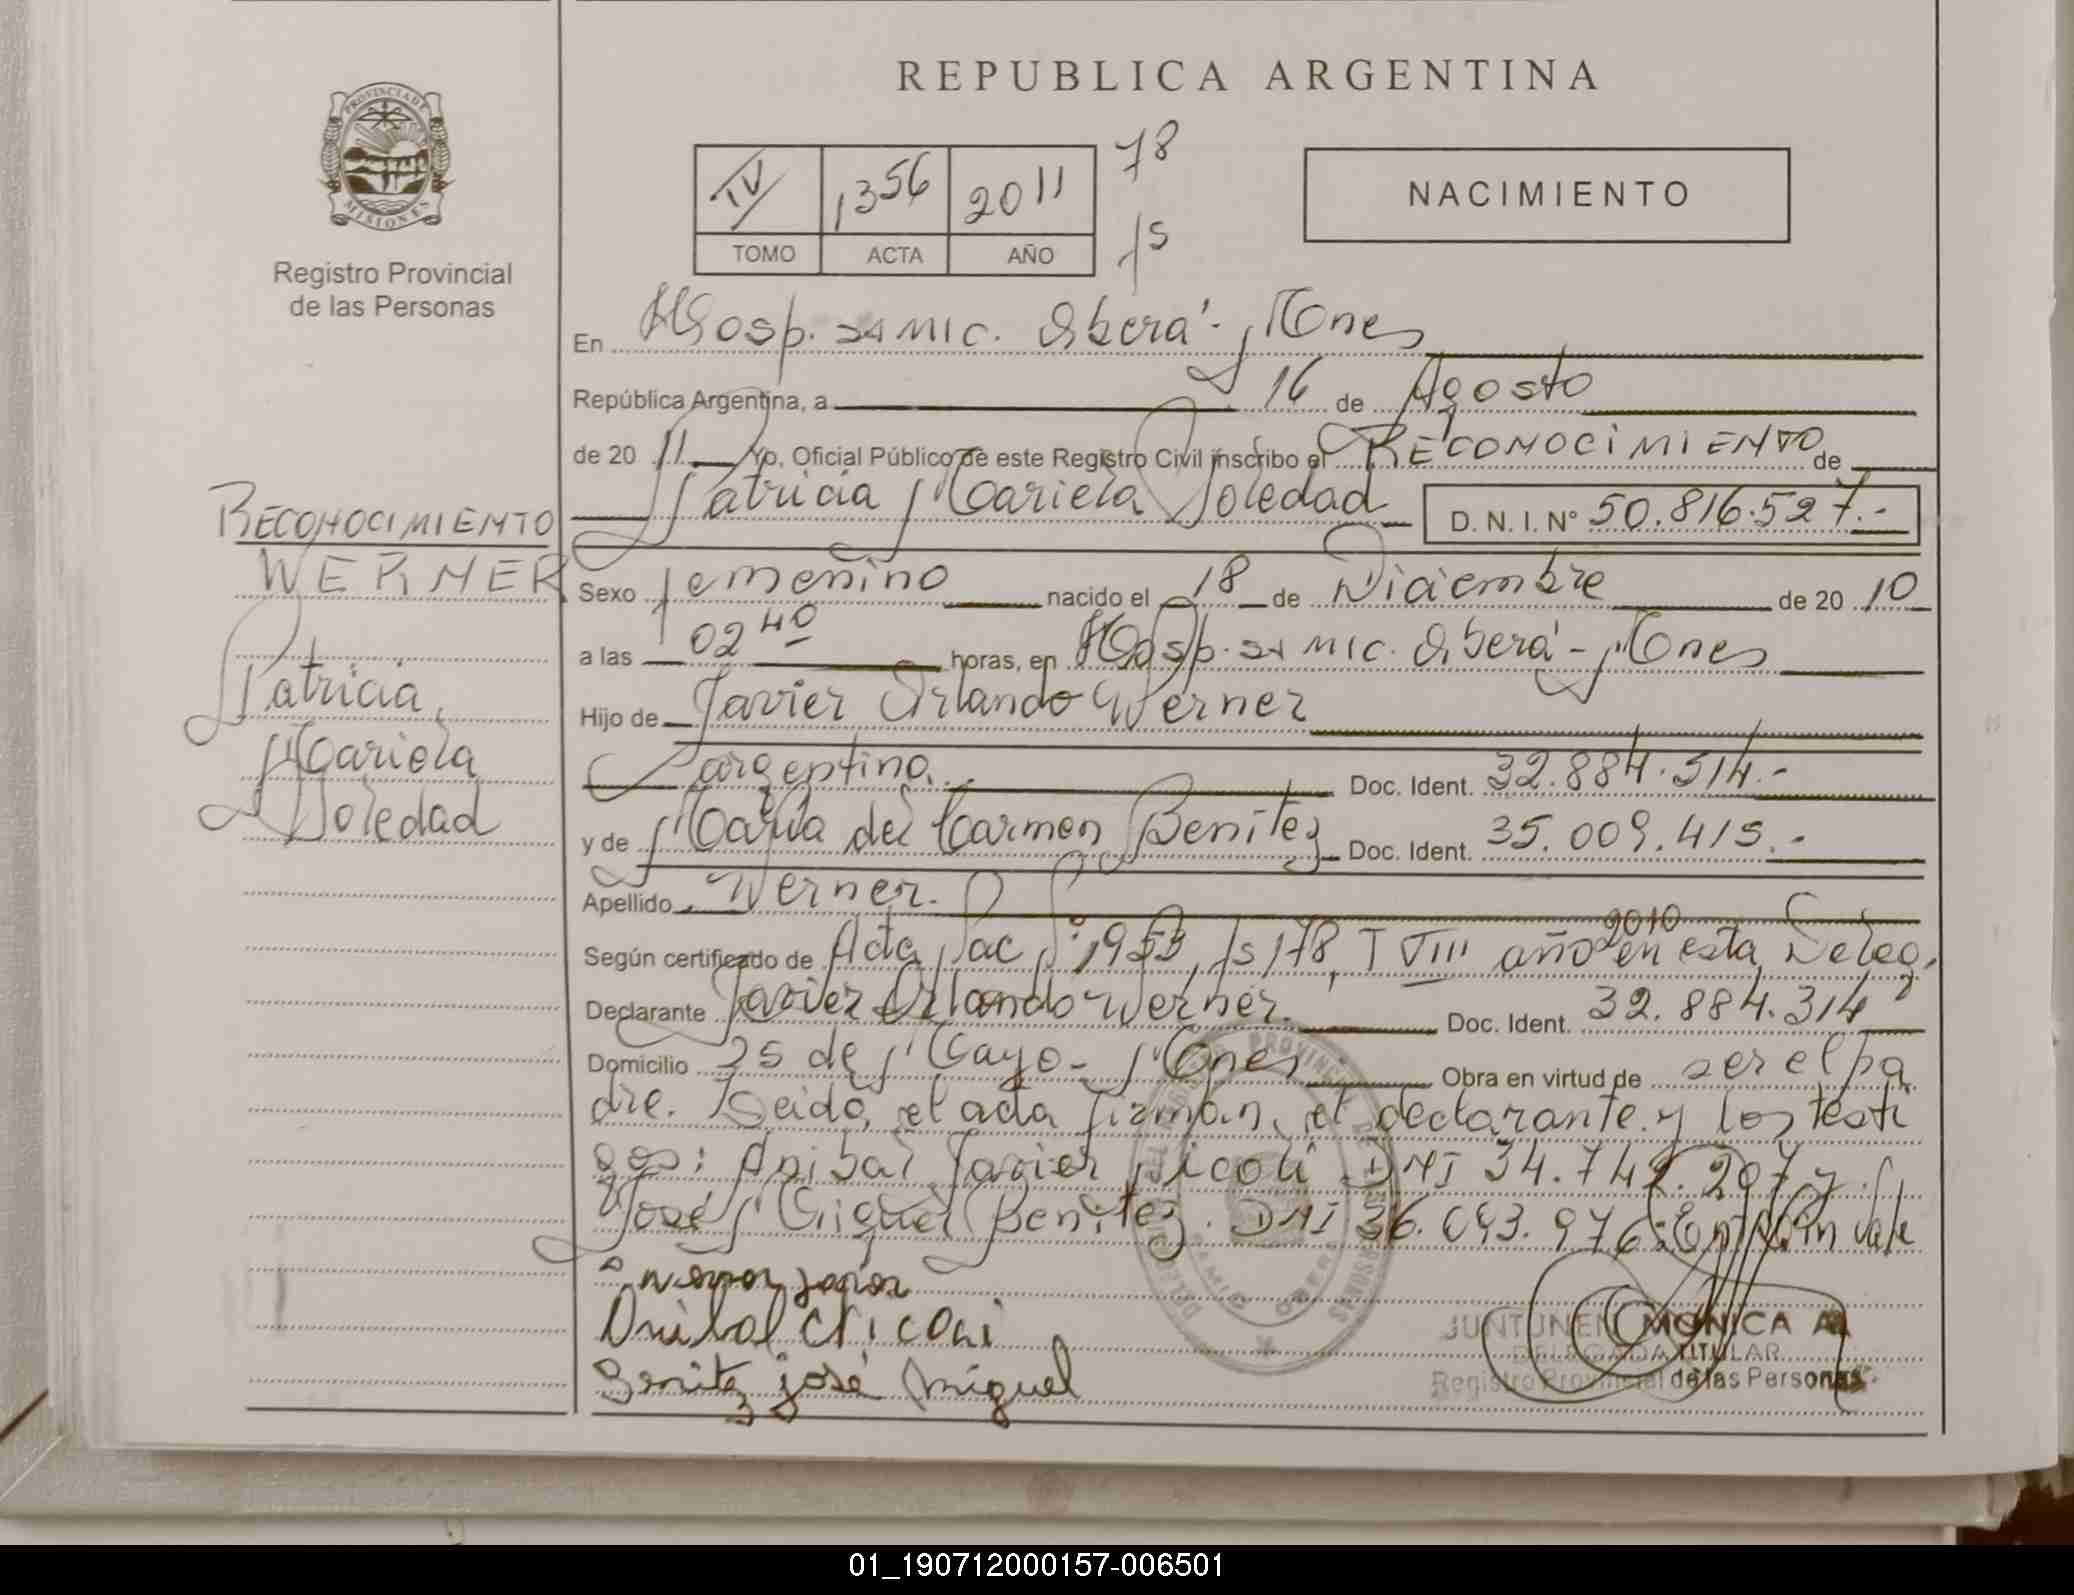 REPUBLICA ARGENTINA
PROVINCIA DE
MISIONES
Registro Provincial
de las Personas
IV 1356 2011 78
TOMO ACTA AÑO
NACIMIENTO
En Hosp. Oberá - Mnes
República Argentina, a 16 de Agosto
de 20 11 Yo, Oficial Público de este Registro Civil inscribo el RECONOCIMIENTO de
Patricia Mariela Soledad D.N.I.Nº 50.816.527.-
RECONOCIMIENTO
WERNER
Patricia
Mariela
Soledad
Sexo femenino nacido el 18 de Diciembre de 20 10
a las 02 40 horas, en Hosp. Oberá - Mnes
Hijo de Javier Orlando Werner
argentino. Doc. Ident. 32.884.314.-
y de María del Carmen Benítez Doc. Ident. 35.009.415.-
Apellido Werner.
Según certificado de Acta Nac Nº 1953, fs 178, T VIII año 2010 en esta Deleg.
Declarante Javier Orlando Werner. Doc. Ident. 32.884.314
Domicilio 25 de Mayo - Mnes Obra en virtud de ser el pa
dre. Leída el acta firman, el declarante y los testi
gos: Anibal Javier DNI 34.742.207 y
José Miguel Benítez. DNI 36.093.976: Vale
Werner Javier
Anibal
Benitez josé miguel
JUNTUNEN MONICA A.
DELEGADA TITULAR
Registro Provincial de las Personas
01_190712000157-006501